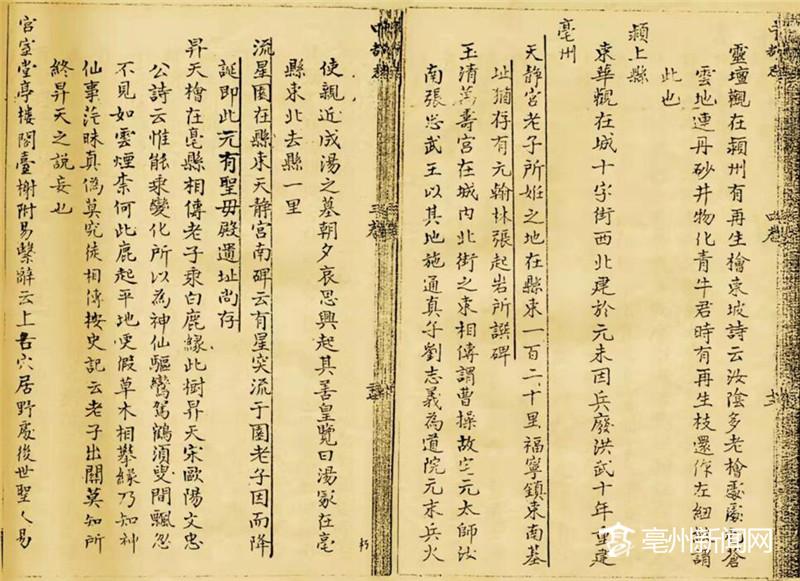 靈壇觀在潁州有再生檜東坡詩云汝陰多老檜處處屯蒼
雲地連丹砂井物化青牛君時有再生枝還作左紐 謂
此也
潁上縣
東華觀在城十字街西北建於元末因兵廢洪武十年重建
亳州
天靜宮老子所姙之地在縣東一百二十里福寧鎮東南基
址猶存有元翰林張起岩所譔碑
玉清萬壽宮在城內北街之東相傳謂曹操故宅元太師汝
南張忠武王以其地施通真子劉志義為道院元末兵火
使親近成湯之墓朝夕哀思興起其善皇覽曰湯冢在亳
縣東北去縣一里
流星園在縣東天靜宮南碑云有星突流于園老子因而降
誕即此元有聖母殿遺址尚存
昇天檜在亳縣相傳老子乘白鹿緣此樹昇天宋歐陽文忠
公詩云惟能乘變化所以為神仙驅鸞駕鶴須臾間飄忽
不見如雲煙柰何此鹿起平地更假草木相攀緣乃知神
仙事茫昧真偽莫究徒相傳按史記云老子出關莫知所
終昇天之說妄也
宮室堂亭樓閣臺榭附易繫辭云上古穴居野處後世聖人易
亳州新闻网